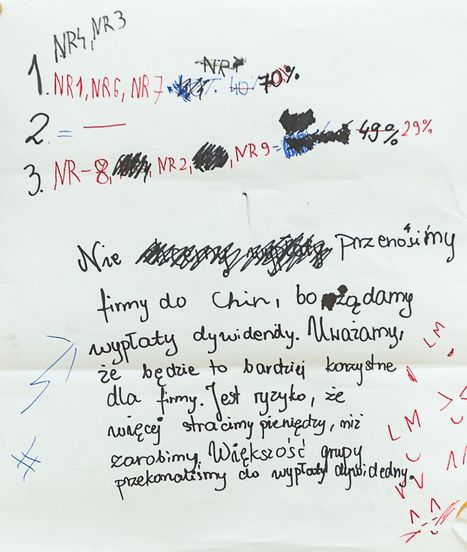 NR4, NR3
1. NR1, NR6, NR7 40% 70%
2. = —
3. NR-8, NR2, NR9 = 49% 29%
Nie przenosimy
firmy do Chin, bo żądamy
wypłaty dywidendy. Uważamy,
że będzie to bardziej korzystne
dla firmy. Jest ryzyko, że
więcej stracimy pieniędzy, niż
zarobimy. Większość grupy
przekonaliśmy do wypłaty dywidedny.
LM
LM